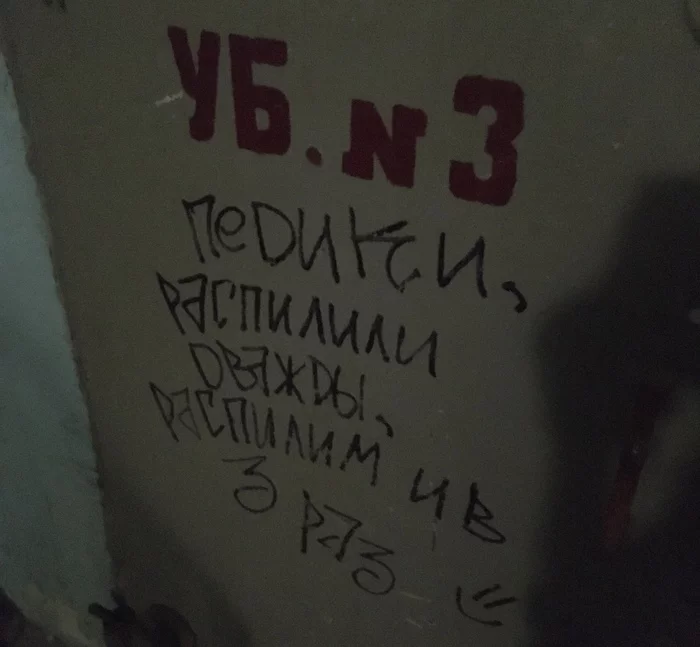 УБ. N3
педики,
РАСПИЛИЛИ
ДВАЖДЫ,
РАСПИЛИМ И В
3 РАЗ =)